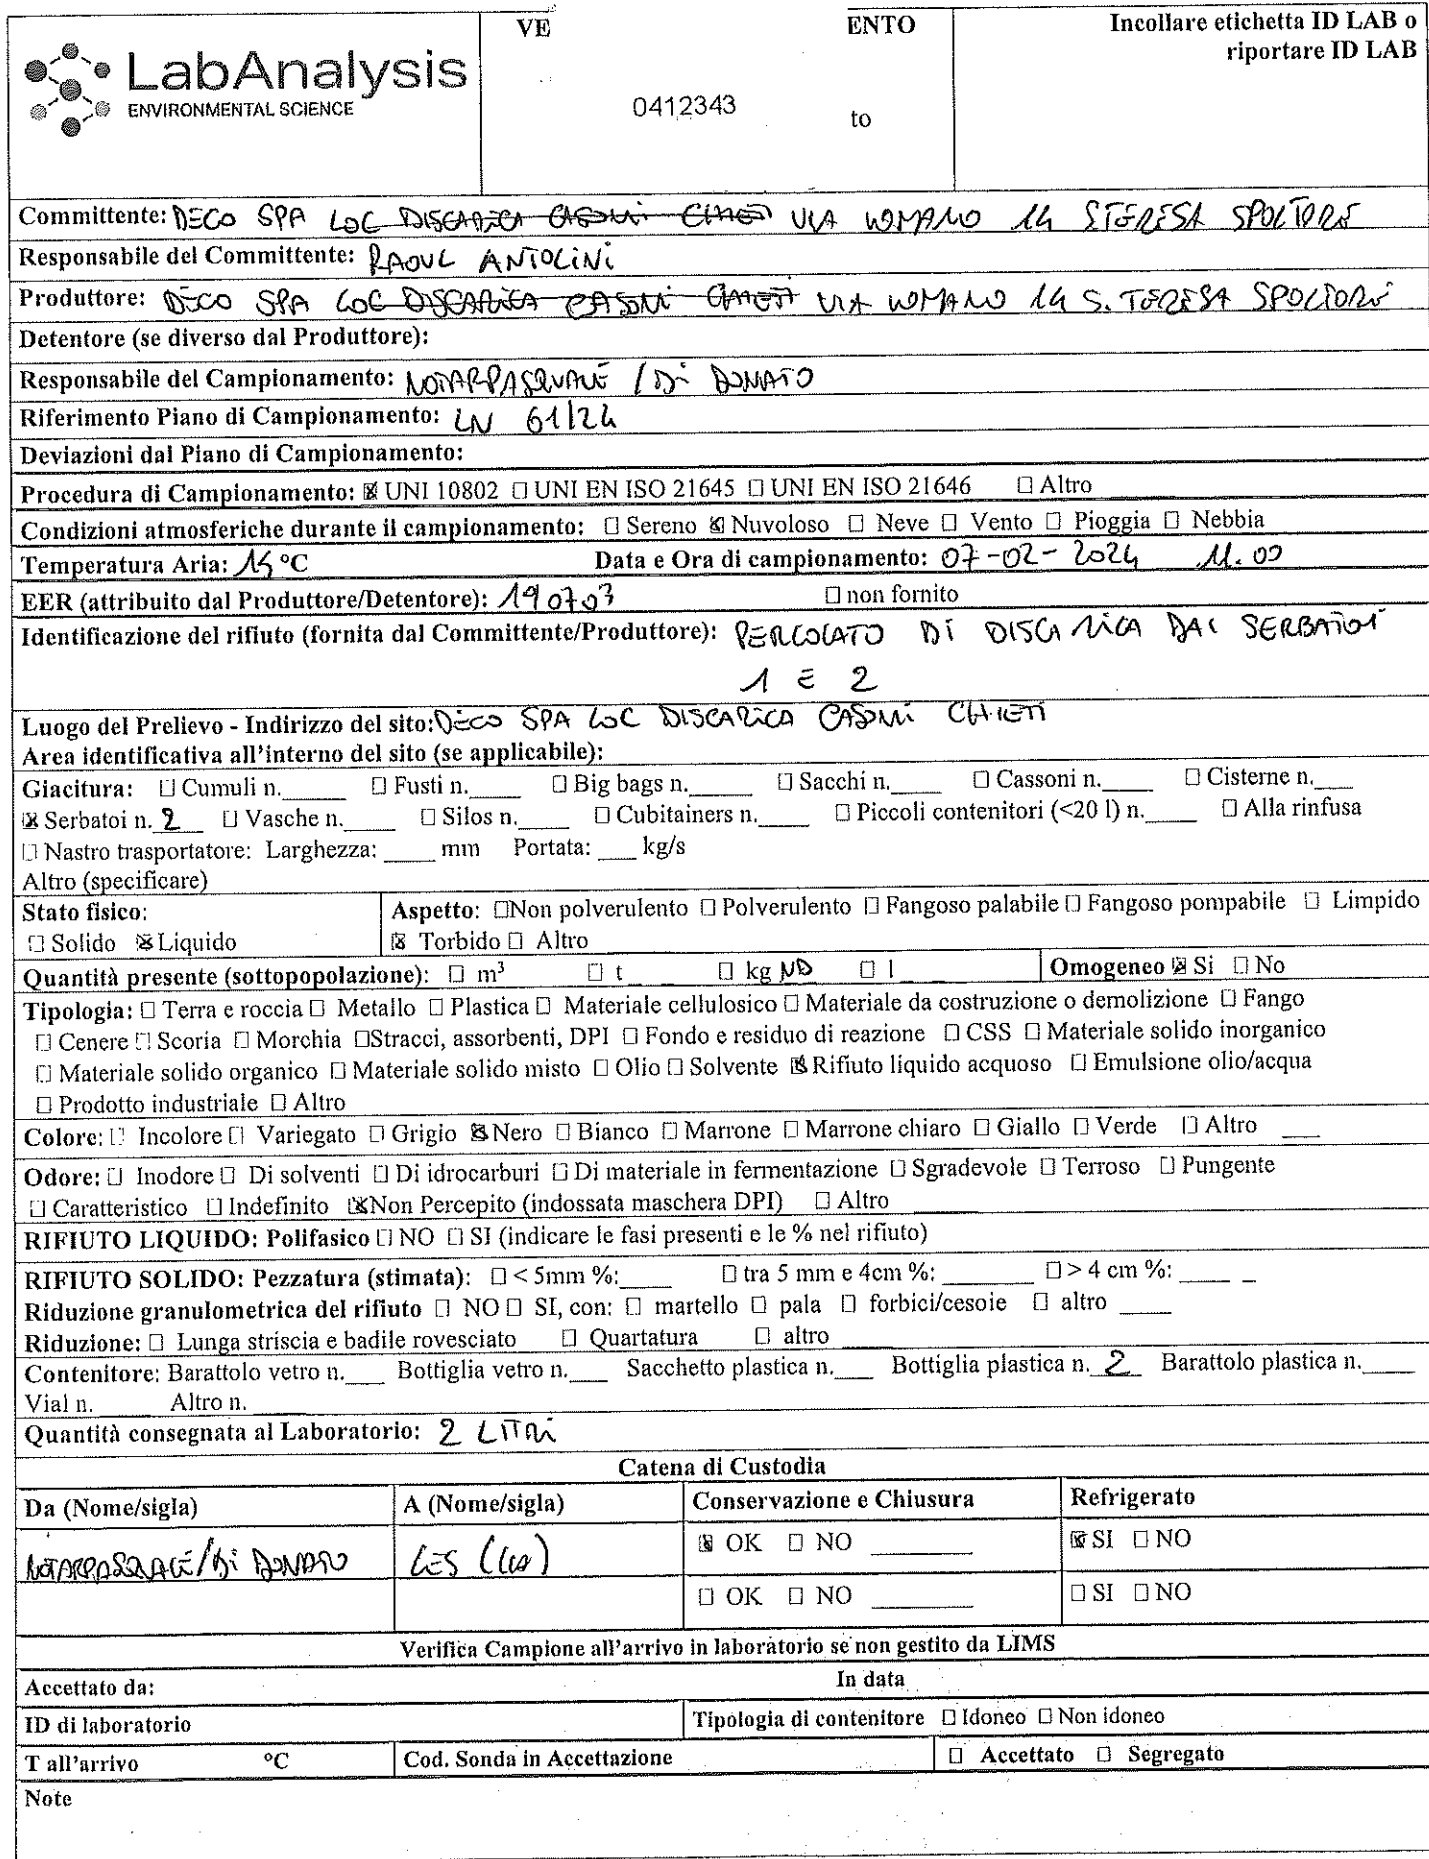 LabAnalysis
ENVIRONMENTAL SCIENCE
VE ENTO
0412343
to
Incollare etichetta ID LAB o
riportare ID LAB
Committente: DECO SPA LOC DISCARICA CASONI CHIETI VIA VOMANO 14 S TERESA SPOLTORE
Responsabile del Committente: RAOUL ANTOLINI
Produttore: DECO SPA LOC DISCARICA CASONI CHIETI VIA VOMANO 14 S. TERESA SPOLTORE
Detentore (se diverso dal Produttore):
Responsabile del Campionamento: NOTARPASQUALE / DI DONATO
Riferimento Piano di Campionamento: LN 61/24
Deviazioni dal Piano di Campionamento:
Procedura di Campionamento: ☒ UNI 10802 ☐ UNI EN ISO 21645 ☐ UNI EN ISO 21646 ☐ Altro
Condizioni atmosferiche durante il campionamento: ☐ Sereno ☒ Nuvoloso ☐ Neve ☐ Vento ☐ Pioggia ☐ Nebbia
Temperatura Aria: °C Data e Ora di campionamento: 07-02-2024 11.00
EER (attribuito dal Produttore/Detentore): 190703 ☐ non fornito
Identificazione del rifiuto (fornita dal Committente/Produttore): PERCOLATO DI DISCARICA DAI SERBATOI
1 E 2
Luogo del Prelievo - Indirizzo del sito: DECO SPA LOC DISCARICA CASONI CHIETI
Area identificativa all'interno del sito (se applicabile):
Giacitura: ☐ Cumuli n.____ ☐ Fusti n.____ ☐ Big bags n.____ ☐ Sacchi n.____ ☐ Cassoni n.____ ☐ Cisterne n.____
☒ Serbatoi n. 2 ☐ Vasche n.____ ☐ Silos n.____ ☐ Cubitainers n.____ ☐ Piccoli contenitori (<20 l) n.____ ☐ Alla rinfusa
☐ Nastro trasportatore: Larghezza: ____ mm Portata: ___ kg/s
Altro (specificare)
Stato fisico: Aspetto: ☐Non polverulento ☐ Polverulento ☐ Fangoso palabile ☐ Fangoso pompabile ☐ Limpido
☐ Solido ☒ Liquido ☒ Torbido ☐ Altro
Quantità presente (sottopopolazione): ☐ m³ ☐ t ☐ kg ND ☐ l Omogeneo ☒ Si ☐ No
Tipologia: ☐ Terra e roccia ☐ Metallo ☐ Plastica ☐ Materiale cellulosico ☐ Materiale da costruzione o demolizione ☐ Fango
☐ Cenere ☐ Scoria ☐ Morchia ☐Stracci, assorbenti, DPI ☐ Fondo e residuo di reazione ☐ CSS ☐ Materiale solido inorganico
☐ Materiale solido organico ☐ Materiale solido misto ☐ Olio ☐ Solvente ☒ Rifiuto liquido acquoso ☐ Emulsione olio/acqua
☐ Prodotto industriale ☐ Altro
Colore: ☐ Incolore ☐ Variegato ☐ Grigio ☒ Nero ☐ Bianco ☐ Marrone ☐ Marrone chiaro ☐ Giallo ☐ Verde ☐ Altro ___
Odore: ☐ Inodore ☐ Di solventi ☐ Di idrocarburi ☐ Di materiale in fermentazione ☐ Sgradevole ☐ Terroso ☐ Pungente
☐ Caratteristico ☐ Indefinito ☒ Non Percepito (indossata maschera DPI) ☐ Altro
RIFIUTO LIQUIDO: Polifasico ☐ NO ☐ SI (indicare le fasi presenti e le % nel rifiuto)
RIFIUTO SOLIDO: Pezzatura (stimata): ☐ < 5mm %:____ ☐ tra 5 mm e 4cm %: ______ ☐ > 4 cm %: ____ _
Riduzione granulometrica del rifiuto ☐ NO ☐ SI, con: ☐ martello ☐ pala ☐ forbici/cesoie ☐ altro ____
Riduzione: ☐ Lunga striscia e badile rovesciato ☐ Quartatura ☐ altro
Contenitore: Barattolo vetro n.___ Bottiglia vetro n.___ Sacchetto plastica n.___ Bottiglia plastica n. 2 Barattolo plastica n.____
Vial n. Altro n.
Quantità consegnata al Laboratorio: 2 LITRI
Catena di Custodia
Da (Nome/sigla) A (Nome/sigla) Conservazione e Chiusura Refrigerato
NOTARPASQUALE/DI DONATO LES ☒ OK ☐ NO ________ ☒ SI ☐ NO
☐ OK ☐ NO ________ ☐ SI ☐ NO
Verifica Campione all'arrivo in laboratorio se non gestito da LIMS
Accettato da: In data
ID di laboratorio Tipologia di contenitore ☐ Idoneo ☐ Non idoneo
T all'arrivo °C Cod. Sonda in Accettazione ☐ Accettato ☐ Segregato
Note